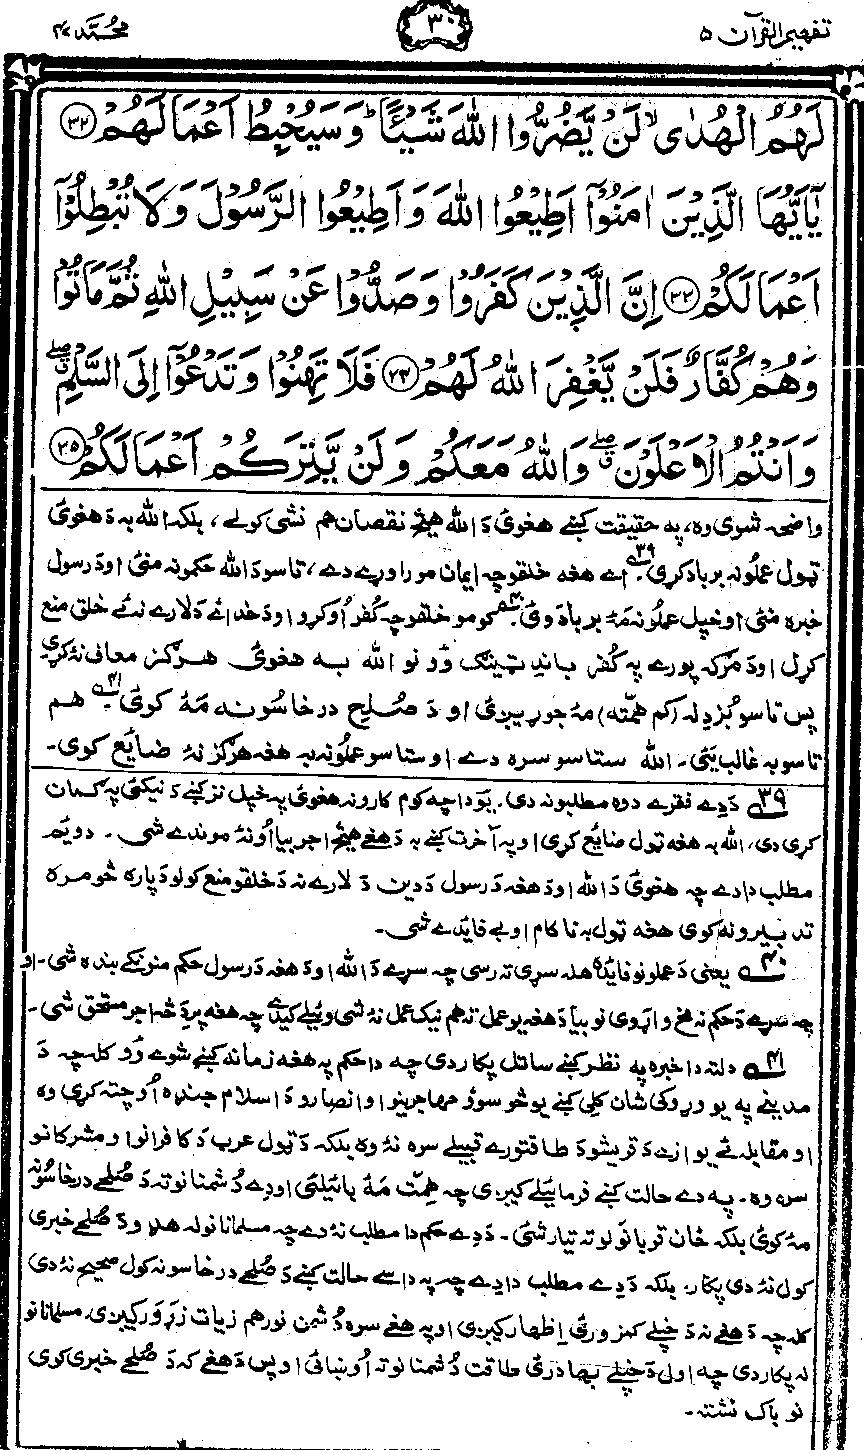 تفهيم القرآن ۵
۳۰
محُمَّد ۴۷
لَهُمُ الْهُدٰى ۙ لَنْ يَّضُرُّوا اللّٰهَ شَيْـًٔا ؕ وَسَيُحْبِطُ اَعْمَالَهُمْ ﴿۳۲﴾
يٰۤاَيُّهَا الَّذِيْنَ اٰمَنُوْۤا اَطِيْعُوا اللّٰهَ وَاَطِيْعُوا الرَّسُوْلَ وَلَا تُبْطِلُوْۤا
اَعْمَالَكُمْ ﴿۳۳﴾ اِنَّ الَّذِيْنَ كَفَرُوْا وَصَدُّوْا عَنْ سَبِيْلِ اللّٰهِ ثُمَّ مَاتُوْا
وَهُمْ كُفَّارٌ فَلَنْ يَّغْفِرَ اللّٰهُ لَهُمْ ﴿۳۴﴾ فَلَا تَهِنُوْا وَتَدْعُوْۤا اِلَى السَّلْمِ ۖ ق
وَاَنْتُمُ الْاَعْلَوْنَ ۖ ق وَاللّٰهُ مَعَكُمْ وَلَنْ يَّتِرَكُمْ اَعْمَالَكُمْ ﴿۳۵﴾
واضحه شوې وه، په حقيقت کښې هغوئ دَ الله هيڅ نقصان هم نشي کولے، بلکه الله به دَ هغوئ
ټول عملونه برباد کړي ۳۹ے. اے هغه خلقو چه ايمان مو راوړے دے، تاسو دَ الله حکمونه منئ او دَ رسول
خبره منئ او خپل عملونه مۀ بربادوئ ۴۰ے. کومو خلقو چه کُفر اُوکړو او دَ خدائے دَ لارے نه ئے خلق منع
کړل او دَ مرګه پورے په کُفر باندے ټينګ وُو نو الله به هغوئ هرګز معافي نۀ کړي
پس تاسو بُزدِله (کم هِمّته) مۀ جوړيږئ او دَ صُلحے درخاسُونه مَۀ کوئ ۴۱ے. هم
تاسو به غالب يئ. الله ستاسو سره دے او ستاسو عملونه به هغه هرګز نۀ ضايع کوي.
۳۹ے دَ دے فقرے دوه مطلبونه دي. يو دا چه کوم کارونه هغوئ په خپل نزد کښے دَ نيکئ په ګمان
کړي دي، الله به هغه ټول ضايع کړي او په آخرت کښے به دَ هغے هيڅ اجر بيا اُو نۀ موندے شي. دويم
مطلب دا دے چه هغوئ دَ الله او دَ هغه دَ رسول دَ دين دَ لارے نه دَ خلقو منع کولو دَ پاره څومره
تدبيرونه کوي هغه ټول به ناکام او بے فايدے شي.
۴۰ے يعني دَ عملونو فايده هله سړي ته رسي چه سړے دَ الله او دَ هغه دَ رسول حکم منونکے بنده شي. او
چه سړے دَ حکم نه مخ واړوي نو بيا دَ هغه يو عمل ته هم نيک عمل نۀ شي وئيلے کيدے چه هغه پرے دَ څۀ اجر مستحق شي.
۴۱ے دلته دا خبره په نظر کښے ساتل پکار دي چه دا حکم په هغه زمانه کښے شوے وُو کله چه دَ
مدينے په يو وړوکي شان کلي کښے يو څو سوؤ مهاجرينو او انصارو دَ اسلام جنډه اُوچته کړي وه
او مقابله ئے يوازے دَ قريشو دَ طاقتورے قبيلے سره نۀ وه بلکه دَ ټول عرب دَ کافرانو او مشرکانو
سره وه. په دے حالت کښے فرمائيلے کيږي چه هِمّت مۀ بائيلئ او دے دُشمنانو ته دَ صُلحے درخاسُونه
مۀ کوئ بلکه ځان قربانولو ته تيار شئ. دَ دے حکم دا مطلب نۀ دے چه مسلمانانو له هډو دَ صُلحے خبرې
کول نۀ دي پکار. بلکه دَ دے مطلب دا دے چه په داسے حالت کښے دَ صُلحے درخاسونه کول صحيح نۀ دي
کله چه دَ هغے نه دَ خپلے کمزورئ اِظهار کيږي او په هغے سره دُشمن نور هم زيات زړه ور کيږي. مسلمانانو
له پکار دي چه اول دَ خپلے بهادرئ طاقت دُشمنانو ته اُوښائي او پس دَ هغے که دَ صُلحے خبرې کوي
نو باک نشته.